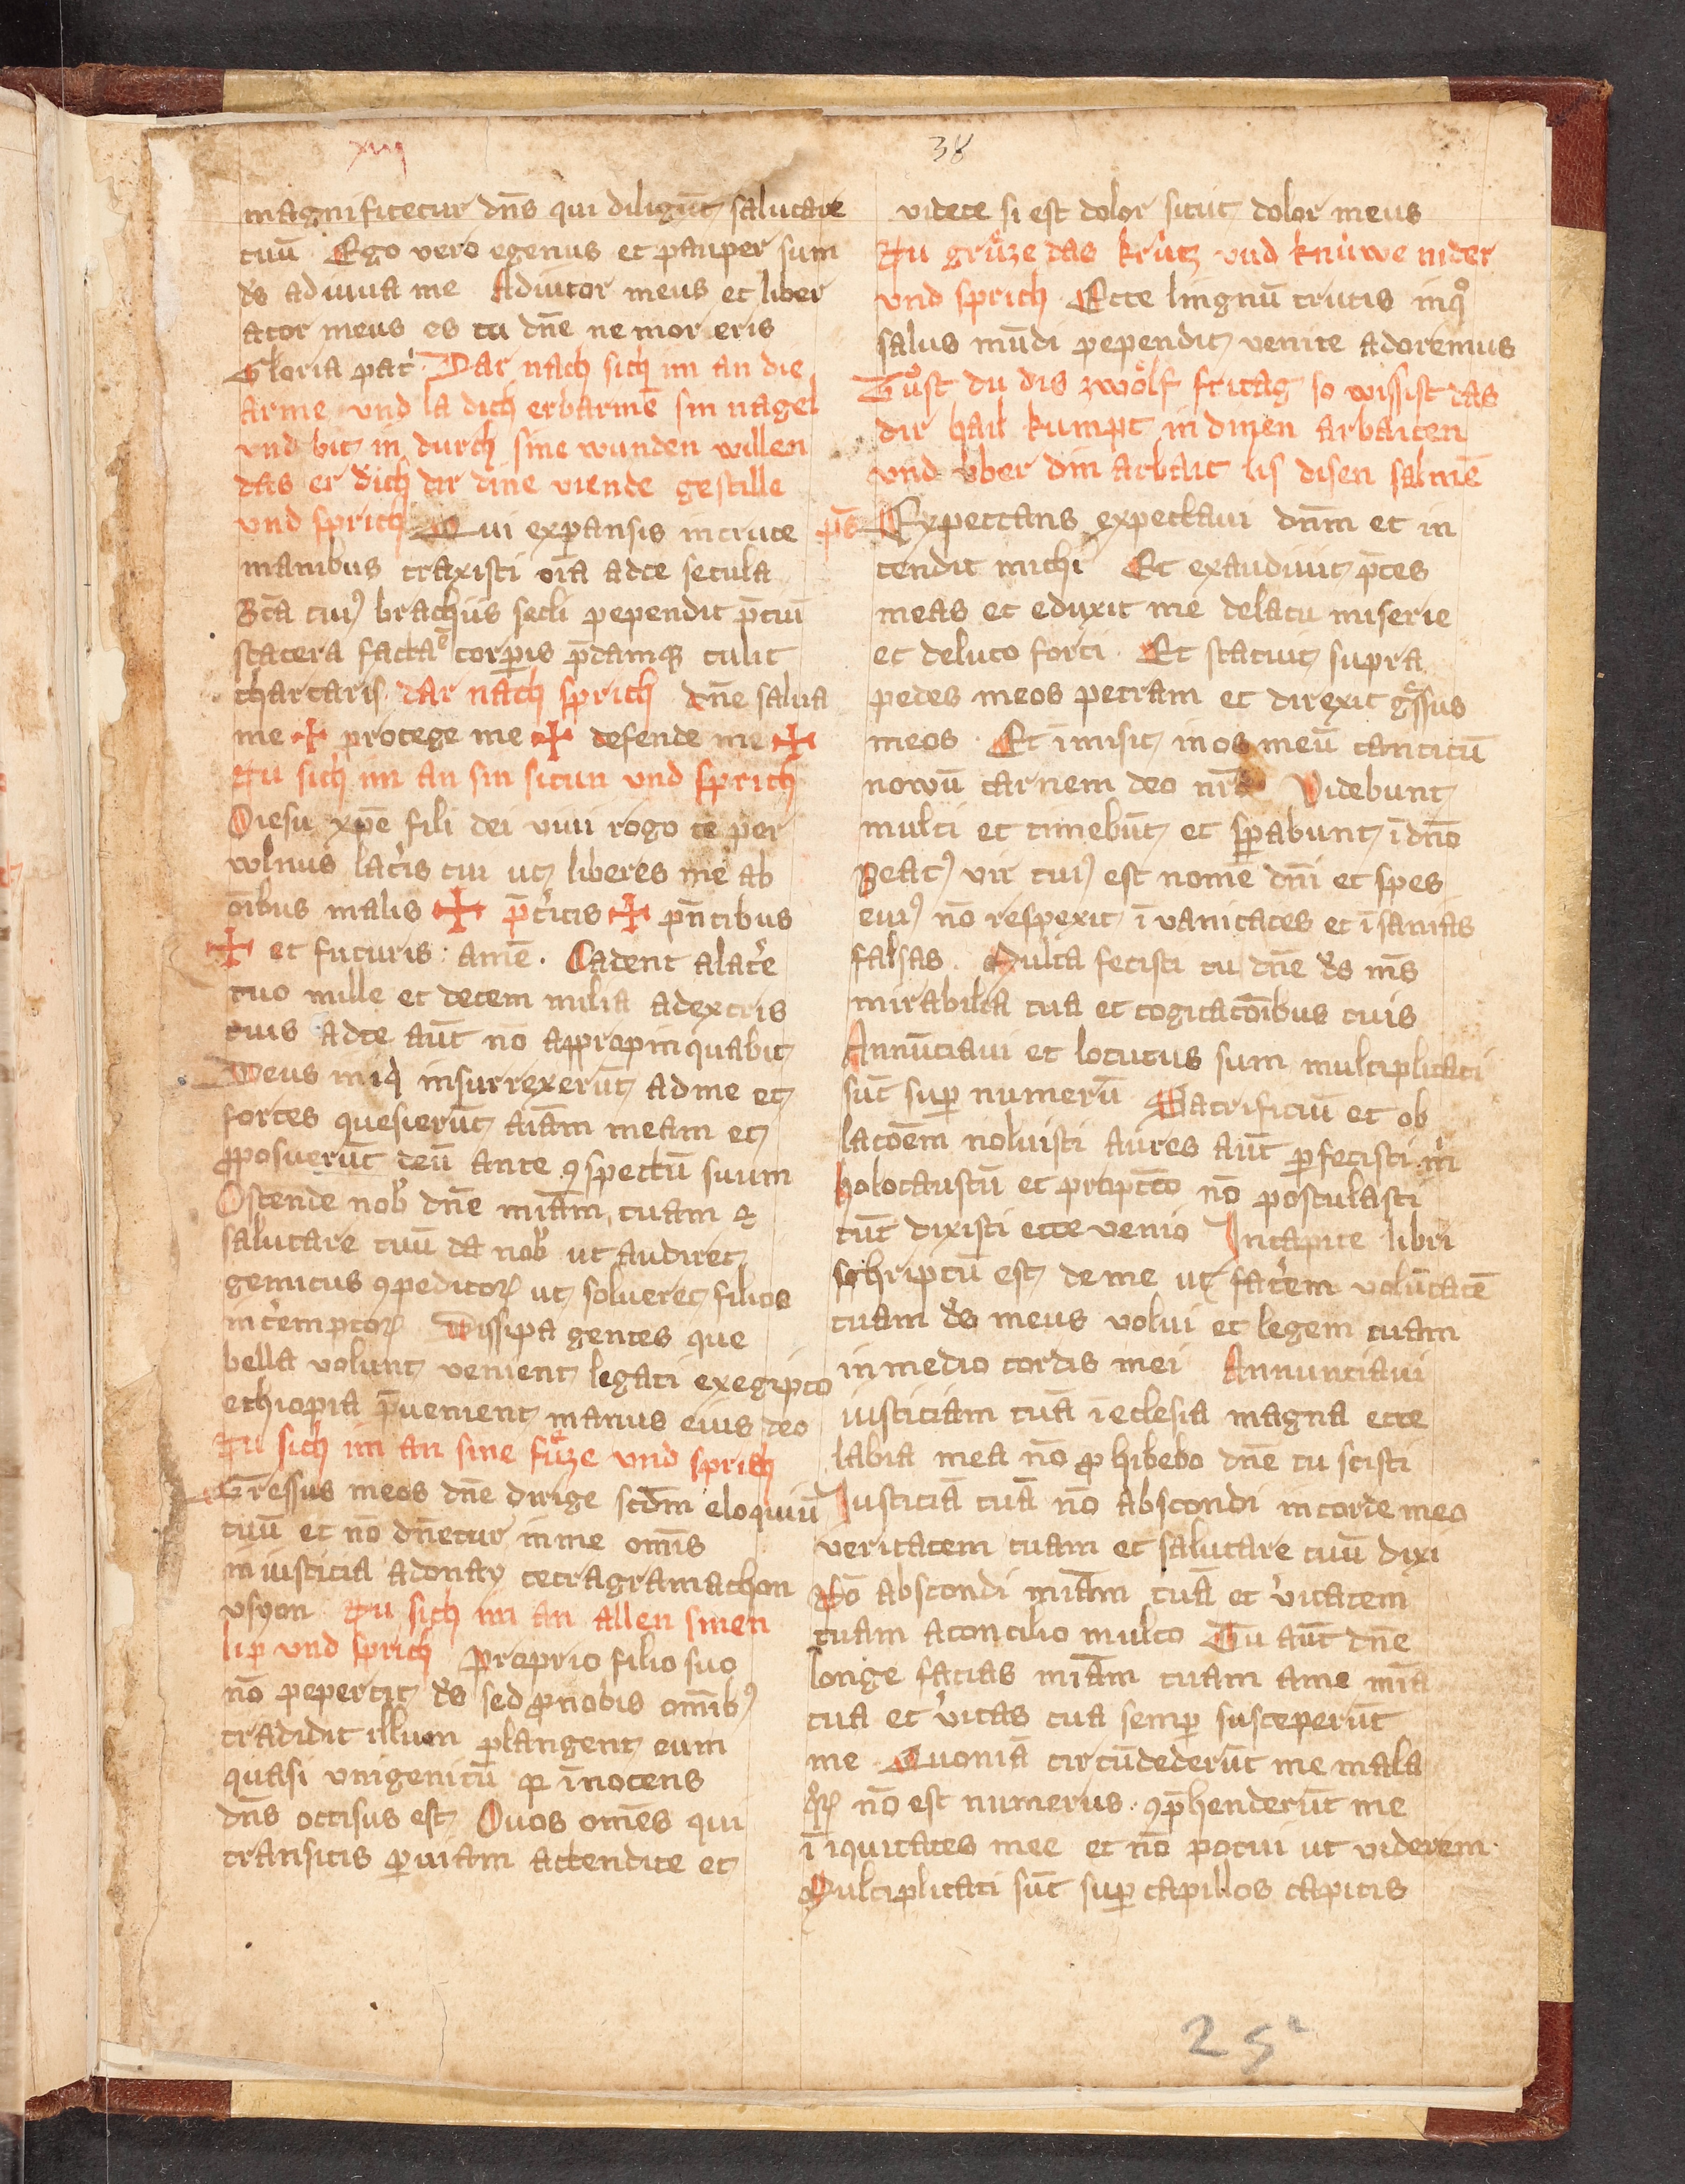 xiij
38
magnificetur dn̄s qui diligūt salutare
tuū Ego vero egenus et pauper sum
ds̄ adiuua me Adiutor meus et liber
ator meus es tu dn̄e ne moreris
Gloria pat͛ Dar nach sich im an die
arme vnd la dich erbarmē sin nagel
vnd bit in durch sine wunden willen
das er dich dir dine viende gestille
vnd sprich Qui expansis in cruce
manibus traxisti oīa ad te secula
Bt̄a cuiꝰ brachiis secli pependit p̄ciū
statera facta ē corꝑis p̄damqꝫ tulit
thartaris dar nach sprich dn̄e salua
me ✠ protege me ✠ defende me ✠
Nu sich im an sin situn vnd sprich
O iesu xp̄e fili dei viui rogo te per
wlnus lat͛is tui ut liberes me ab
oībus malis ✠ p̄t͛itis ✠ pn̄tibus
✠ et futuris : amē . Cadent a lat͛e
tuo mille et decem milia a dextris
tuis ad te aūt nō appropinquabit
Deus iniq̄ insurrexerūt ad me et
fortes quesierūt aīam meam et
ꝓposuerūt deū ante ꝯspectū suum
Ostende nob̄ dn̄e mīam tuam ⁊
salutare tuū da nob̄ ut audiret
gemitus ꝯpeditoꝝ ut solueret filios
int͛emptoꝝ Dissipa gentes que
bella volunt venient legati ex egipto
ethiopia p̄uenient manus eius deo
Nu sich im an sine fuͤze vnd sprich
Gressus meos dn̄e dirige scd̄m eloquiū
tuū et nō dn̄etur in me omīs
iniusticia adonay tetragramathon
vsyon Nu sich im an allen sinen
lip vnd sprich Proprio filio suo
nō pepercit ds̄ sed ꝓ nobis omībꝰ
tradidit illum plangent eum
quasi vnigenitū qꝛ īnocens
dn̄s occisus est O uos omēs qui
transitis ꝑ uiam attendite et
videte si est dolor sicut dolor meus
Nu gruͤze das krùtz vnd knùwe nider
vnd sprich Ecce lingnū crucis in qͦ
salus mūdi pependit venite adoremus
Tuͦst du dis zwoͤlf fritag so wissist das
dir hail kumpt in dinen arbaiten
vnd vber din arbait lis disen salmē
ps̄ Expectans expectaui dn̄m et in
tendit michi Et exaudiuit p̄ces
meas et eduxit me de lacu miserie
et de luto feci Et statuit supra
pedes meos petram et direxit gͣssus
meos . Et īmisit in os meū canticū
nowū carmem deo nr̄o Videbunt
multi et timebūt et sꝑabunt ī dn̄o
Beatꝰ vir cuiꝰ est nomē dn̄i et spes
euiꝰ nō respexit ī vanitates et īsanias
falsas . Multa fecisti tu dn̄e ds̄ ms̄
mirabilia tua et cogitacōībus tuis
Annūciaui et locutus sum multiplicati
sūt suꝑ numerū Sacrificiū et ob
lacōem noluisti aures aūt ꝑfecisti m͛i
holocaustū et pro ꝑctō nō postulasti
tūc dixisti ecce venio In capite libri
schriptū est de me ut fac͛em volūtatē
tuam ds̄ meus volui et legem tuam
in medio cordis mei Annunciaui
iusticiam tuā ī eclesia magna ecce
labia mea nō ꝓhibebo dn̄e tu scisti
Iusticiā tuā nō abscondi in corde meo
veritatem tuam et salutare tuū dixi
Nō abscondi mīam tuā et v͛itatem
tuam a concilio multo Tu aūt dn̄e
longe facias mīam tuam a me mīa
tua et v͛itas tua semꝑ susceperūt
me Quoniā circūdederūt me mala
qͦꝝ nō est numerus . ꝯp̄henderūt me
īiquitates mee et nō potui ut viderem .
Multiplicati sūt suꝑ capillos capitis
25